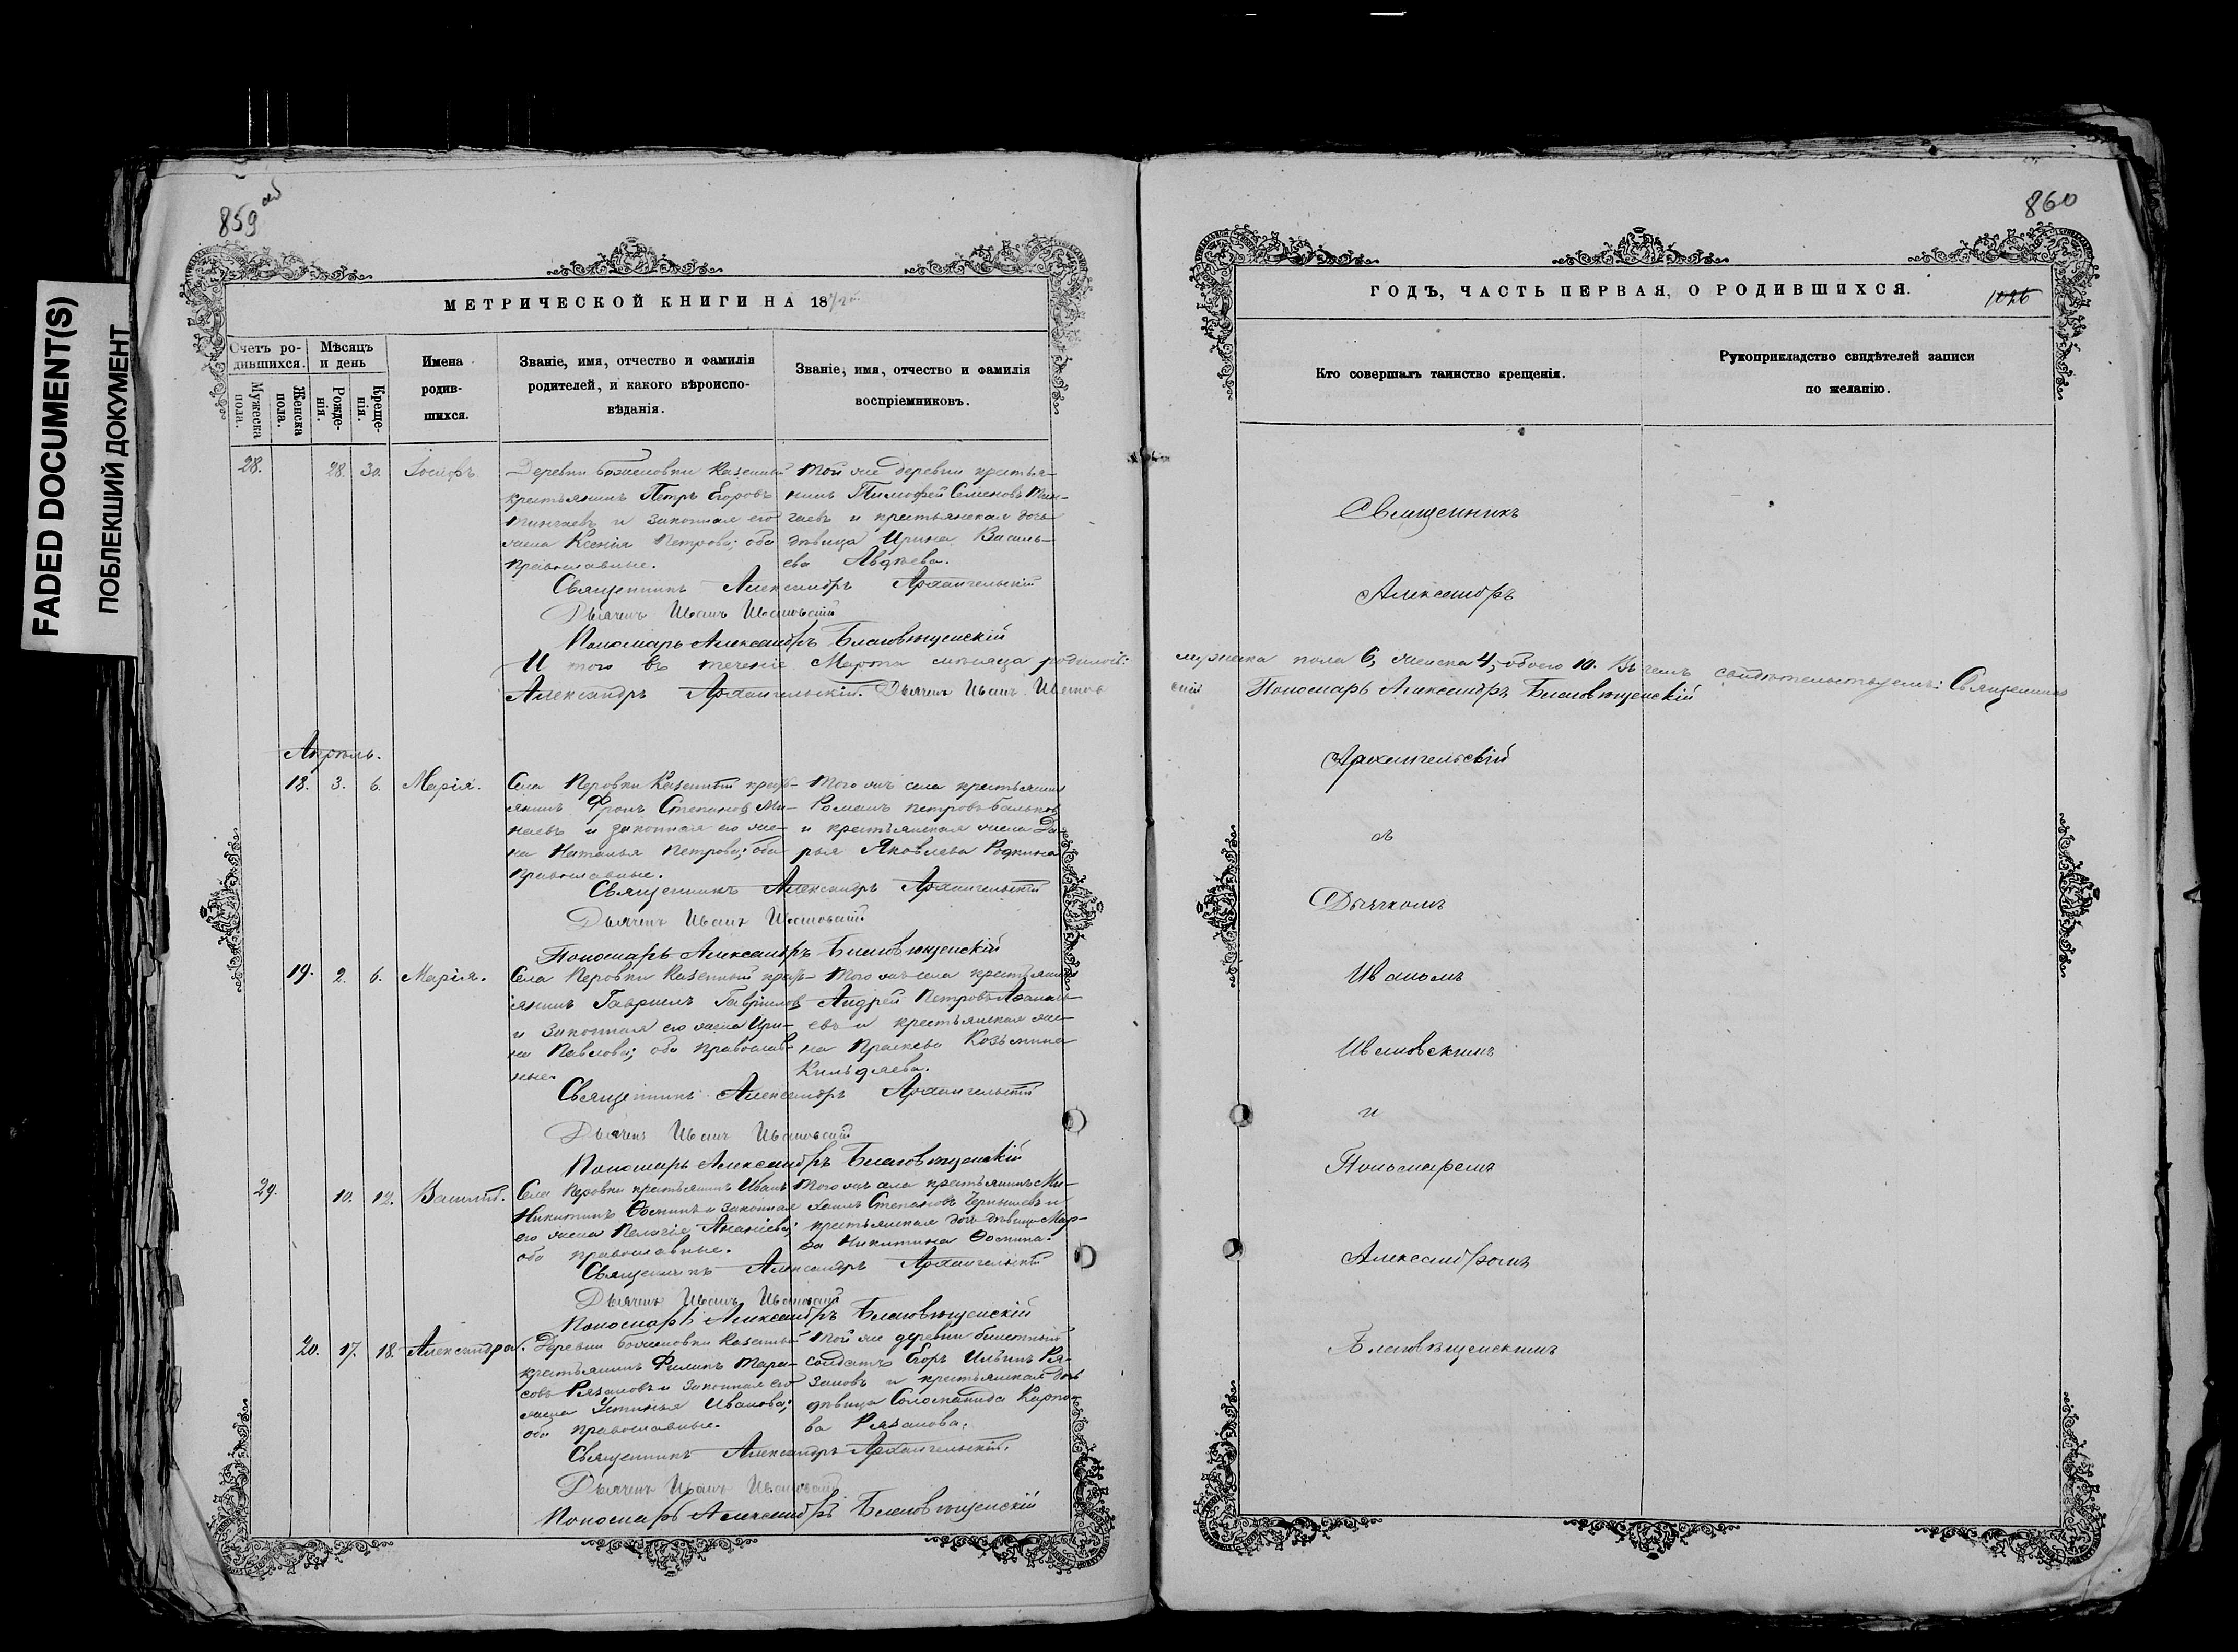 FADED DOCUMENT(S)
ПОБЛЕКШИЙ ДОКУМЕНТ
859 об
МЕТРИЧЕСКОЙ КНИГИ НА 18
Счетъ ро-
дившихся.
Мужеска пола.
Женска пола.
Мѣсяцъ
и день
Рожде-
нія.
Креще-
нія.
Имена
родив-
шихся.
Званіе, имя, отчество и фамилія
родителей, и какого вѣроиспо-
вѣданія.
Званіе, имя, отчество и фамилія
воспріемниковъ.
28. 28. 30. Іосифъ
Деревни Казенный
крестьянинъ Петръ Егоровъ
и законная его
жена Ксенія Петрова; оба
православные.
Той же деревни крестья-
нинъ Тимофей Семеновъ Мин-
гаевъ и крестьянская дочь
дѣвица Ирина Василь-
ева Авдѣева.
Священникъ Александръ Архангельскій
Дьячекъ Иванъ Ивановскій
Пономарь Александръ Благовѣщенскій
И того въ теченіе Марта мѣсяца родилось:
Александръ Архангельскій. Дьячекъ Иванъ Иванов
Апрѣль.
18. 3. 6. Марія.
Села Перовки Казенный кресть-
янинъ Фролъ Степановъ Ми-
наевъ и законная его же-
на Наталья Петрова; оба
православные.
Того жъ села крестьянинъ
Романъ Петровъ
и крестьянская жена Да-
рья Яковлева Родкина
Священникъ Александръ Архангельскій
Дьячекъ Иванъ Ивановскій
Пономарь Александръ Благовѣщенскій
19. 2. 6. Марія.
Села Перовки Казенный кресть-
янинъ Гавріилъ Гавріиловъ
и законная его жена Ири-
на Павлова; оба православ-
ные.
Того жъ села крестьянинъ
Андрей Петровъ Афанась-
евъ и крестьянская же-
на Праскева Козьмина
Кильдяева.
Священникъ Александръ Архангельскій
Дьячекъ Иванъ Ивановскій
Пономарь Александръ Благовѣщенскій
29. 10. 12. Василій.
Села Перовки крестьянинъ Иванъ
Никитинъ Ѳоминъ и законная
его жена Пелагія Ананіева;
оба православные.
Того жъ села крестьянинъ Ми-
хаилъ Степановъ Чернышевъ и
крестьянская дочь дѣвица Мар-
ѳа Никитина Ѳомина.
Священникъ Александръ Архангельскій
Дьячекъ Иванъ Ивановскій
Пономарь Александръ Благовѣщенскій
20. 17. 18. Александра.
Деревни Казенный
крестьянинъ Филипъ Тара-
совъ Рязановъ и законная его
жена Устинья Иванова;
оба православные.
Той же деревни билетный
солдатъ Егоръ Ильинъ Ря-
зановъ и крестьянская дочь
дѣвица Соломанида Карпо-
ва Рязанова.
Священникъ Александръ Архангельскій.
Дьячекъ Иванъ Ивановскій
Пономарь Александръ Благовѣщенскій
860
ГОДЪ, ЧАСТЬ ПЕРВАЯ, О РОДИВШИХСЯ.
1026
Кто совершалъ таинство крещенія.
Рукоприкладство свидѣтелей записи
по желанію.
Священникъ
Александръ
мужеска пола 6, женска 4, обоего 10. Въ чемъ свидѣтельствуемъ: Священникъ
скій Пономарь Александръ Благовѣщенскій
Архангельскій
съ
Дьячкомъ
Иваномъ
Ивановскимъ
и
Пономаремъ
Александромъ
Благовѣщенскимъ